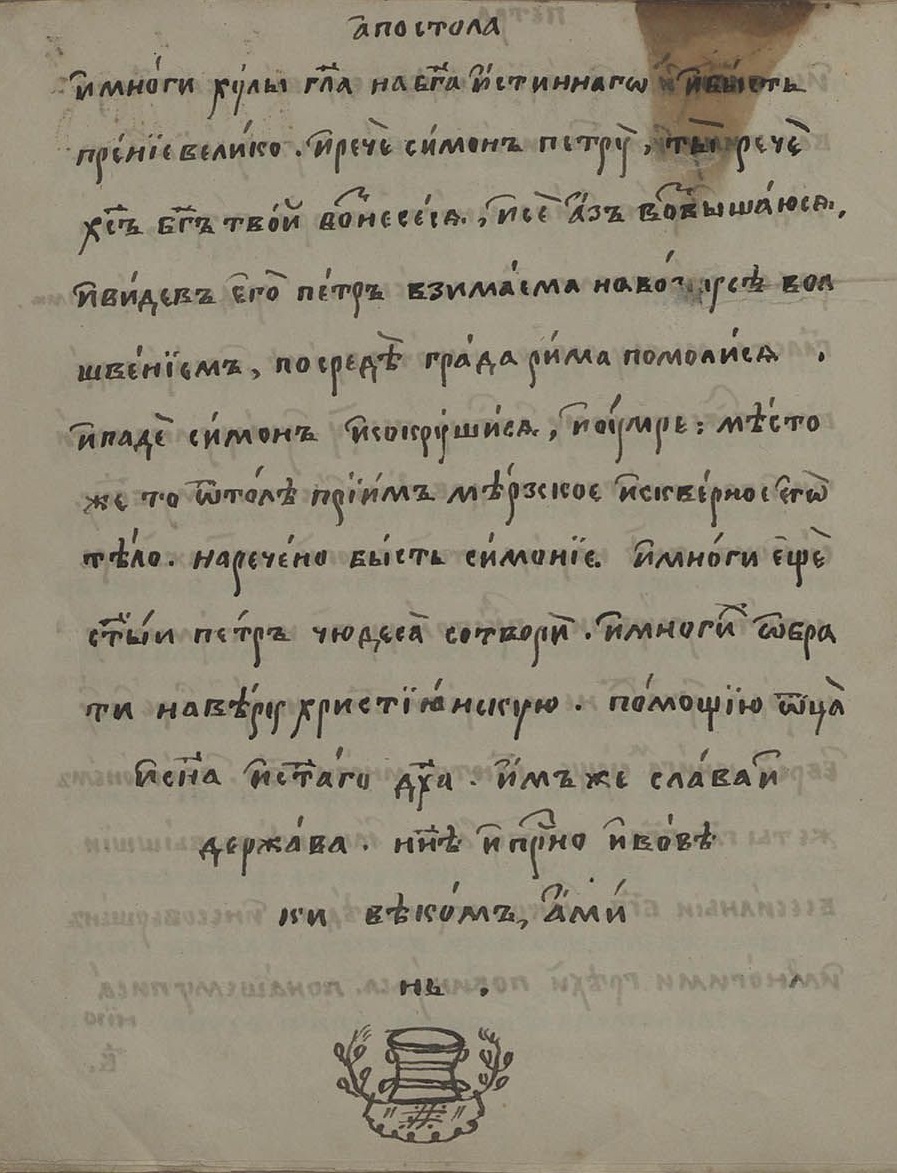 а҆постола
и҆мно́ги ху́лы гл҃а на бг҃а и҆́стиннагѡ и҆бы́сть
пре́нїе вели́ко. и҆речѐ си́монъ петрꙋ̀, ты̀ речѐ
хс҃ъ бг҃ъ тво́й вознесе́сѧ, и҆сѐ а҆́зъ возвыша́юсѧ,
и҆ви́девъ є҆го̀ пе́тръ взима́ема на во́здꙋсѣ вол
шве́нїемъ, посредѣ̀ гра́да ри́ма помоли́сѧ .
и҆падѐ си́монъ и҆сокрꙋши́сѧ, и҆оу҆́мре: мѣ́сто
же то ѿто́лѣ прїи́мъ мѣ́рзское и҆скве́рное є҆гѡ̀
тѣ́ло. нарече́но бы́сть си́монїе. и҆мно́ги є҆щѐ
ст҃ы́и пе́тръ чюдеса̀ сотворѝ. и҆многи́ѧ ѡ҆бра
ти на вѣ́рꙋ христїѧ́нскую. по́мощїю ѿца̀
и҆сн҃а и҆ст҃а́го дх҃а. и҆́мъже сла́ва и҆
держа́ва. нн҃ѣ и҆при́сно и҆вовѣ́
ки вѣко́мъ, а҆ми́
нь .